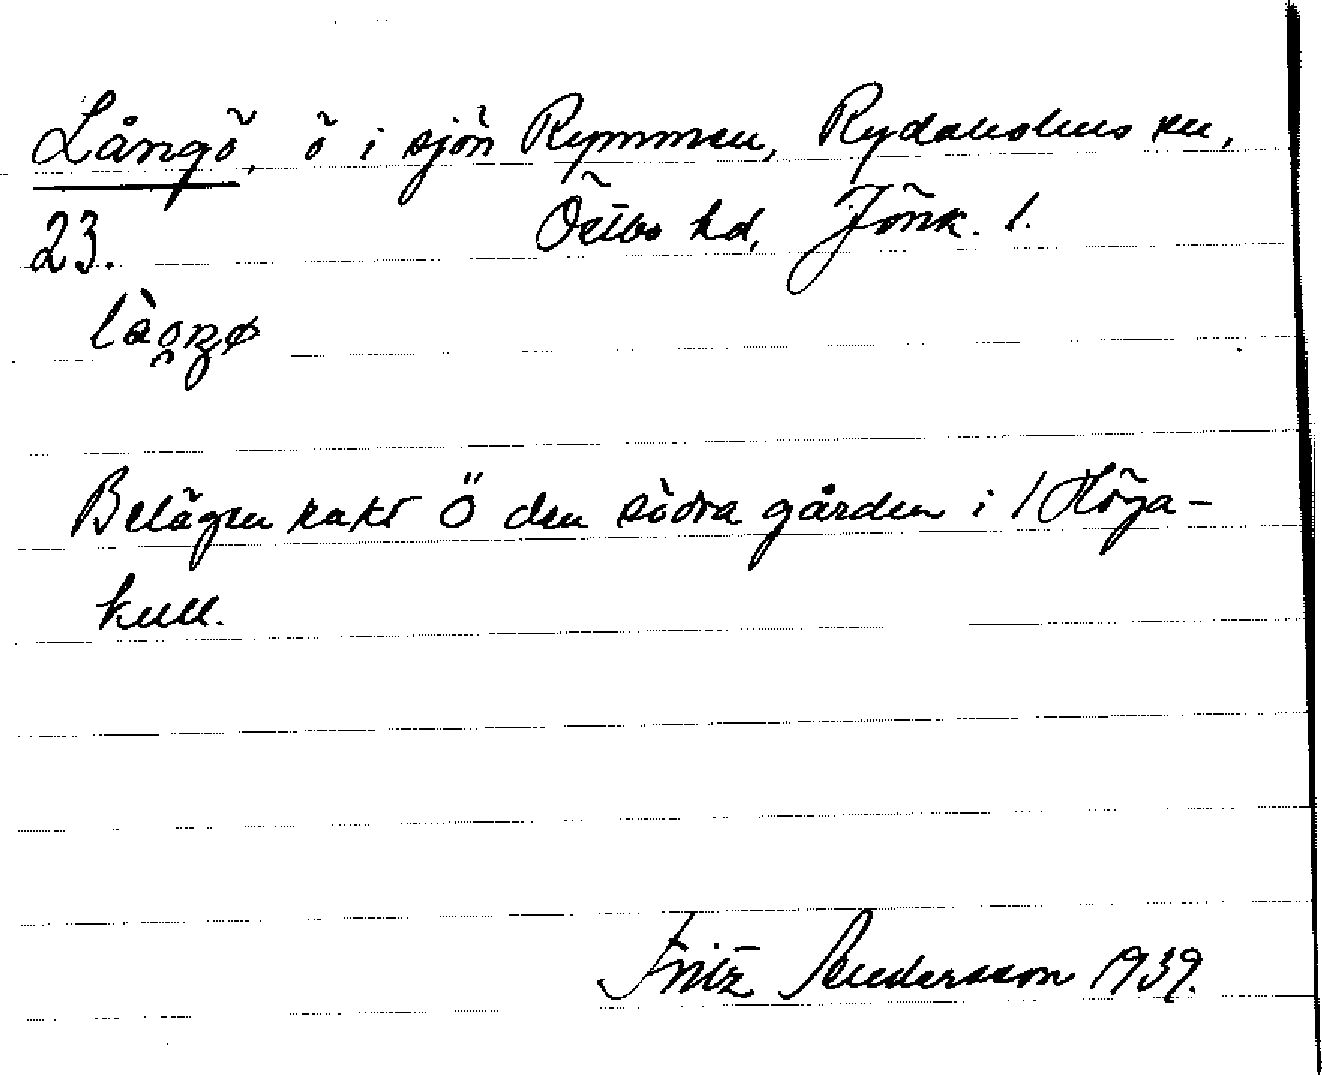 Långö, ö i sjön Rymmen, Rydaholms sn,
23. Östbo hd, Jönk. l.
Belägen rakt Ö den södra gården i Höga-
kull.
Fritz Andersson 1939.